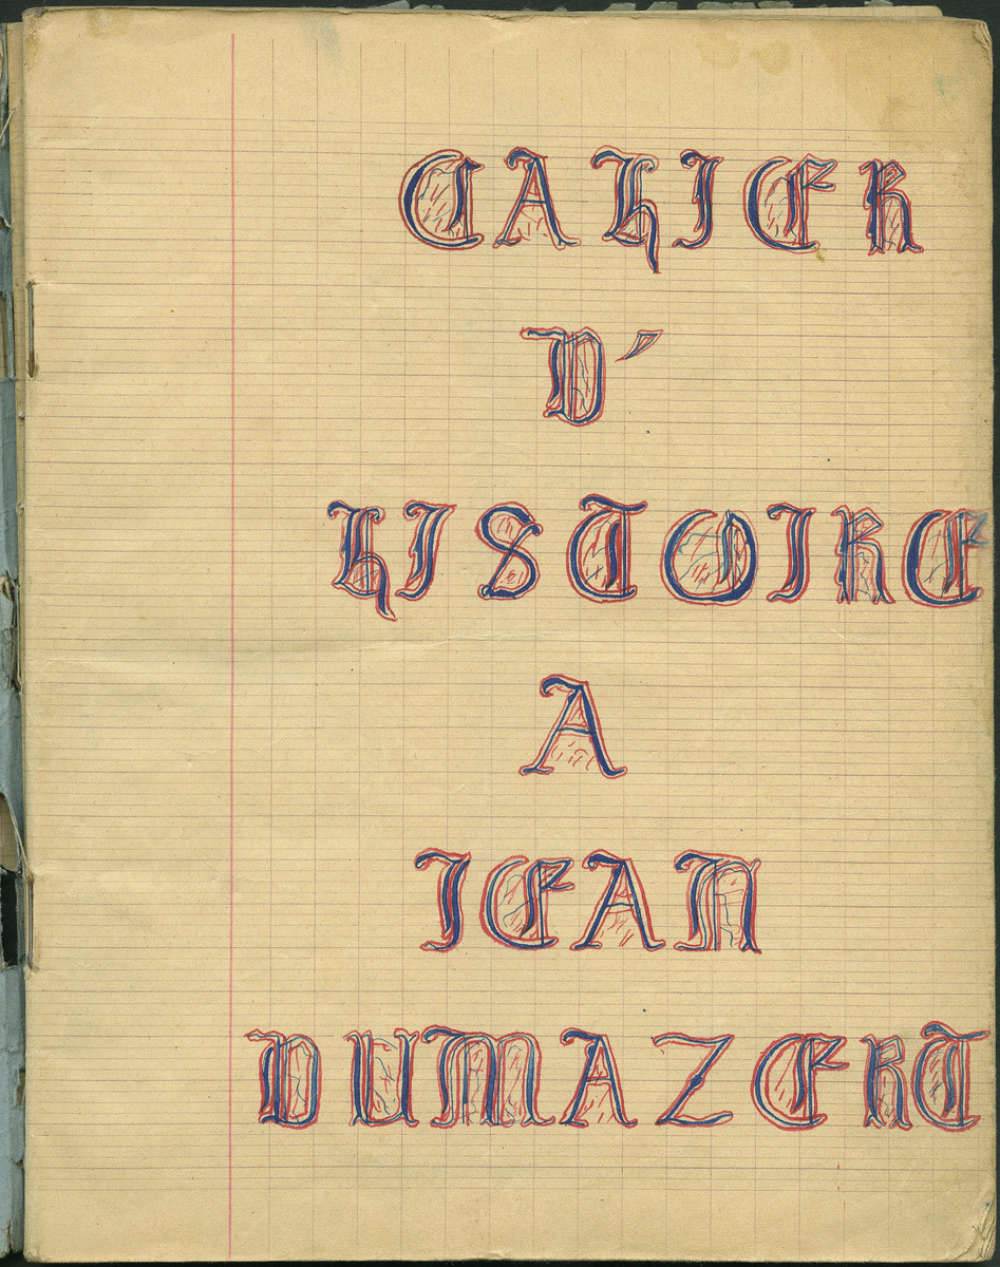 CAHIER
D'
HISTOIRE
A
JEAN
DUMAZERT